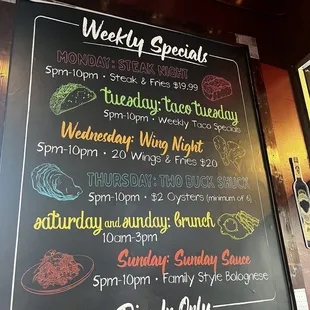 Weekly Specials
MONDAY: STEAK NIGHT
5pm-10pm • Steak & Fries $19.99
tuesday: taco tuesday
5pm-10pm • Weekly Taco Specials
Wednesday: Wing Night
5pm-10pm • 20 Wings & Fries $20
THURSDAY: TWO BUCK SHUCK
5pm-10pm • $2 Oysters (minimum of 6)
saturday and sunday: brunch
10am-3pm
Sunday: Sunday Sauce
5pm-10pm • Family Style Bolognese
Dine In Only